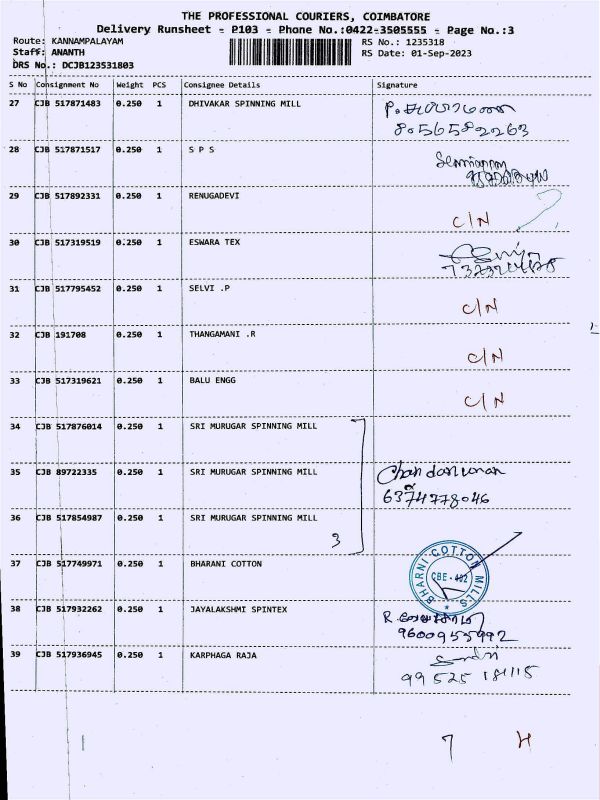 THE PROFESSIONAL COURIERS, COIMBATORE
Delivery Runsheet - P103 - Phone No.:0422-3505555 - Page No.:3
Route: KANNAMPALAYAM
RS No.: 1235318
Staff: ANANTH
RS Date: 01-Sep-2023
DRS No.: DCJB123531803
S No Consignment No Weight PCS Consignee Details Signature
27 CJB 517871483 0.250 1 DHIVAKAR SPINNING MILL
8056582263
28 CJB 517871517 0.250 1 S P S
29 CJB 517892331 0.250 1 RENUGADEVI
C/N
30 CJB 517319519 0.250 1 ESWARA TEX
31 CJB 517795452 0.250 1 SELVI .P
C/N
32 CJB 191708 0.250 1 THANGAMANI .R
C/N
33 CJB 517319621 0.250 1 BALU ENGG
C/N
34 CJB 517876014 0.250 1 SRI MURUGAR SPINNING MILL
35 CJB 89722335 0.250 1 SRI MURUGAR SPINNING MILL
6374778046
36 CJB 517854987 0.250 1 SRI MURUGAR SPINNING MILL
3
37 CJB 517749971 0.250 1 BHARANI COTTON
BHARNI COTTON MILLS
CBE - 402
38 CJB 517932262 0.250 1 JAYALAKSHMI SPINTEX
9600955992
39 CJB 517936945 0.250 1 KARPHAGA RAJA
99525 18115
7 H